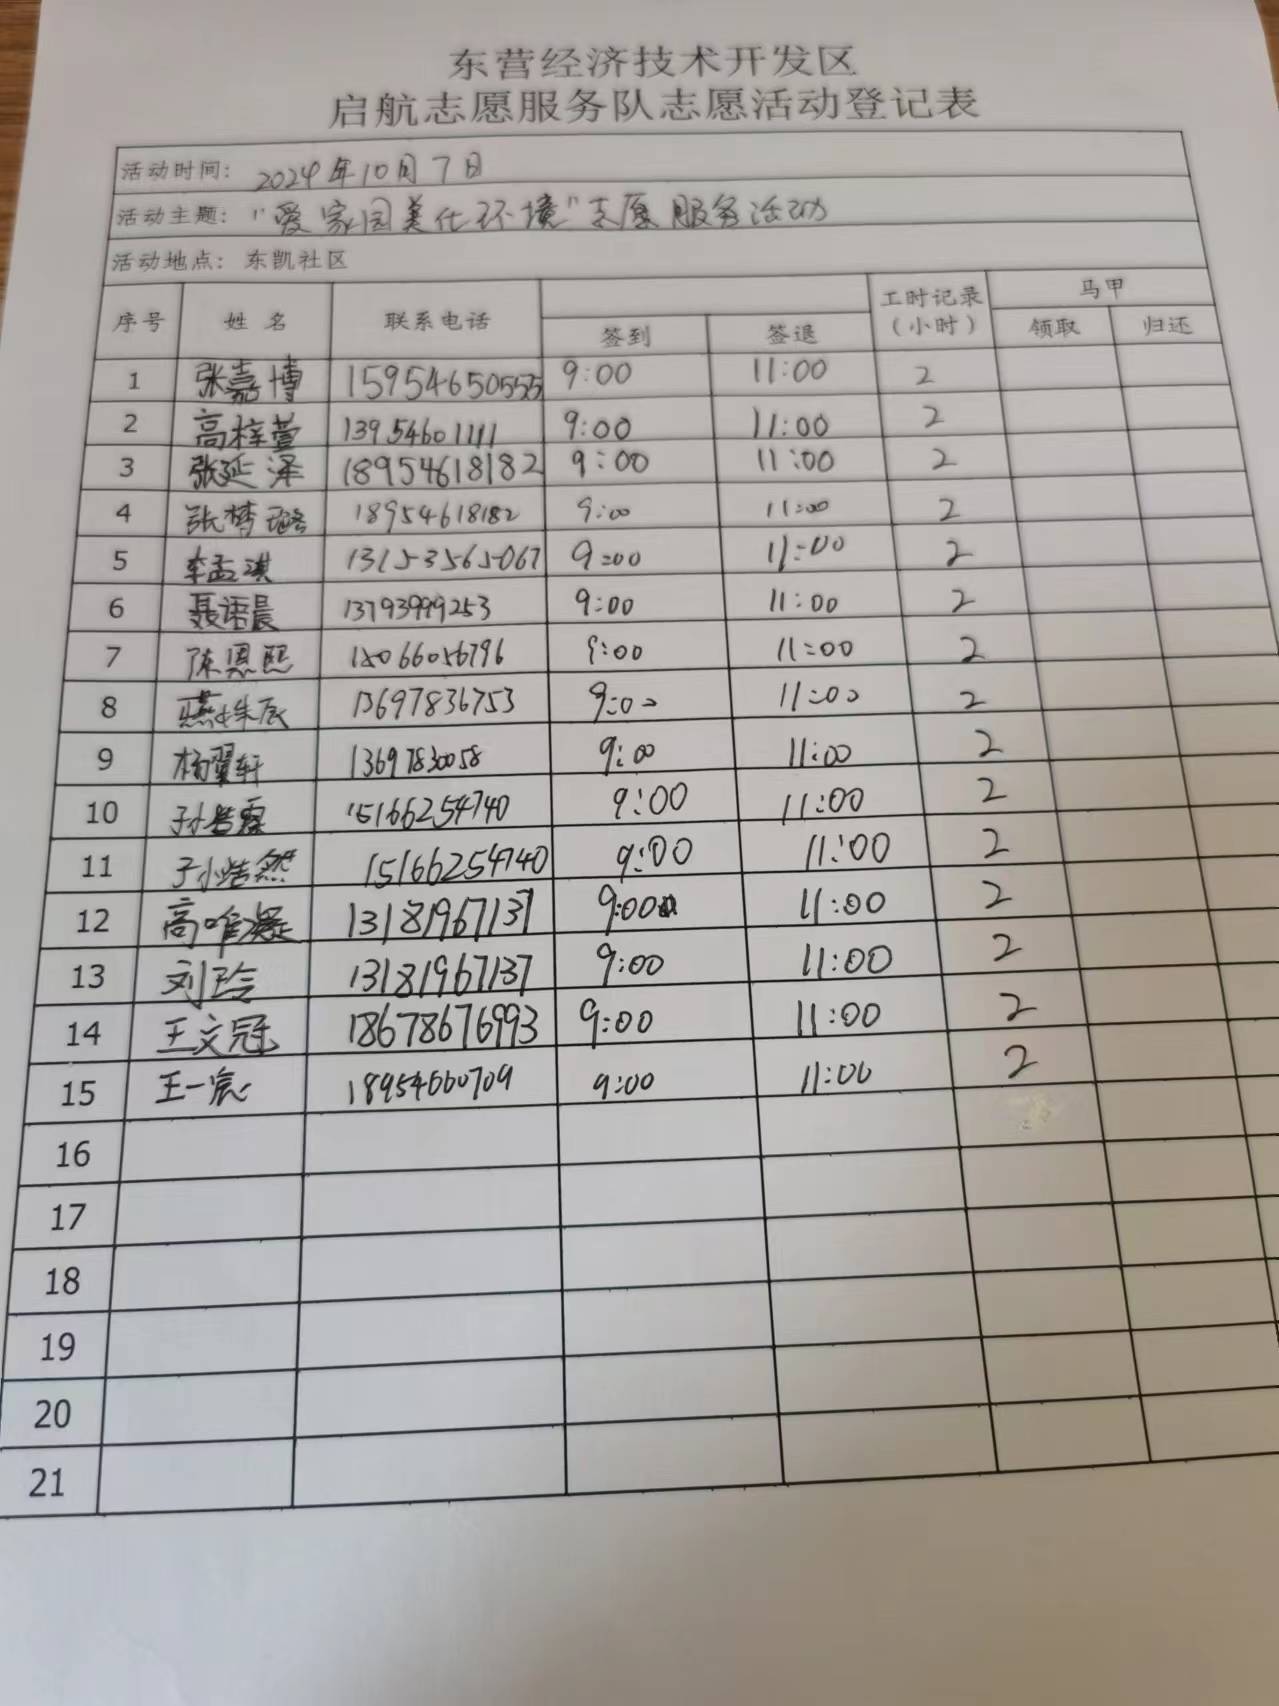 东营经济技术开发区
启航志愿服务队志愿活动登记表
活动时间: 2024年10月7日
活动主题: "爱家园美化环境"志愿服务活动
活动地点: 东凯社区
序号 姓名 联系电话 签到 签退 工时记录(小时) 马甲 领取 归还
1 张嘉博 15954650555 9:00 11:00 2
2 高梓萱 13954601111 9:00 11:00 2
3 张延泽 18954618182 9:00 11:00 2
4 张梦璐 18954618182 9:00 11:00 2
5 李孟淇 13153565067 9:00 11:00 2
6 聂语晨 13793999253 9:00 11:00 2
7 陈恩熙 15066056796 9:00 11:00 2
8 13697836753 9:00 11:00 2
9 杨翼轩 13697830058 9:00 11:00 2
10 孙浩霖 15166254740 9:00 11:00 2
11 孙浩然 15166254740 9:00 11:00 2
12 高唯凝 13181967137 9:00 11:00 2
13 刘玲 13181967137 9:00 11:00 2
14 王文冠 18678676993 9:00 11:00 2
15 王一宸 18954660709 9:00 11:00 2
16
17
18
19
20
21